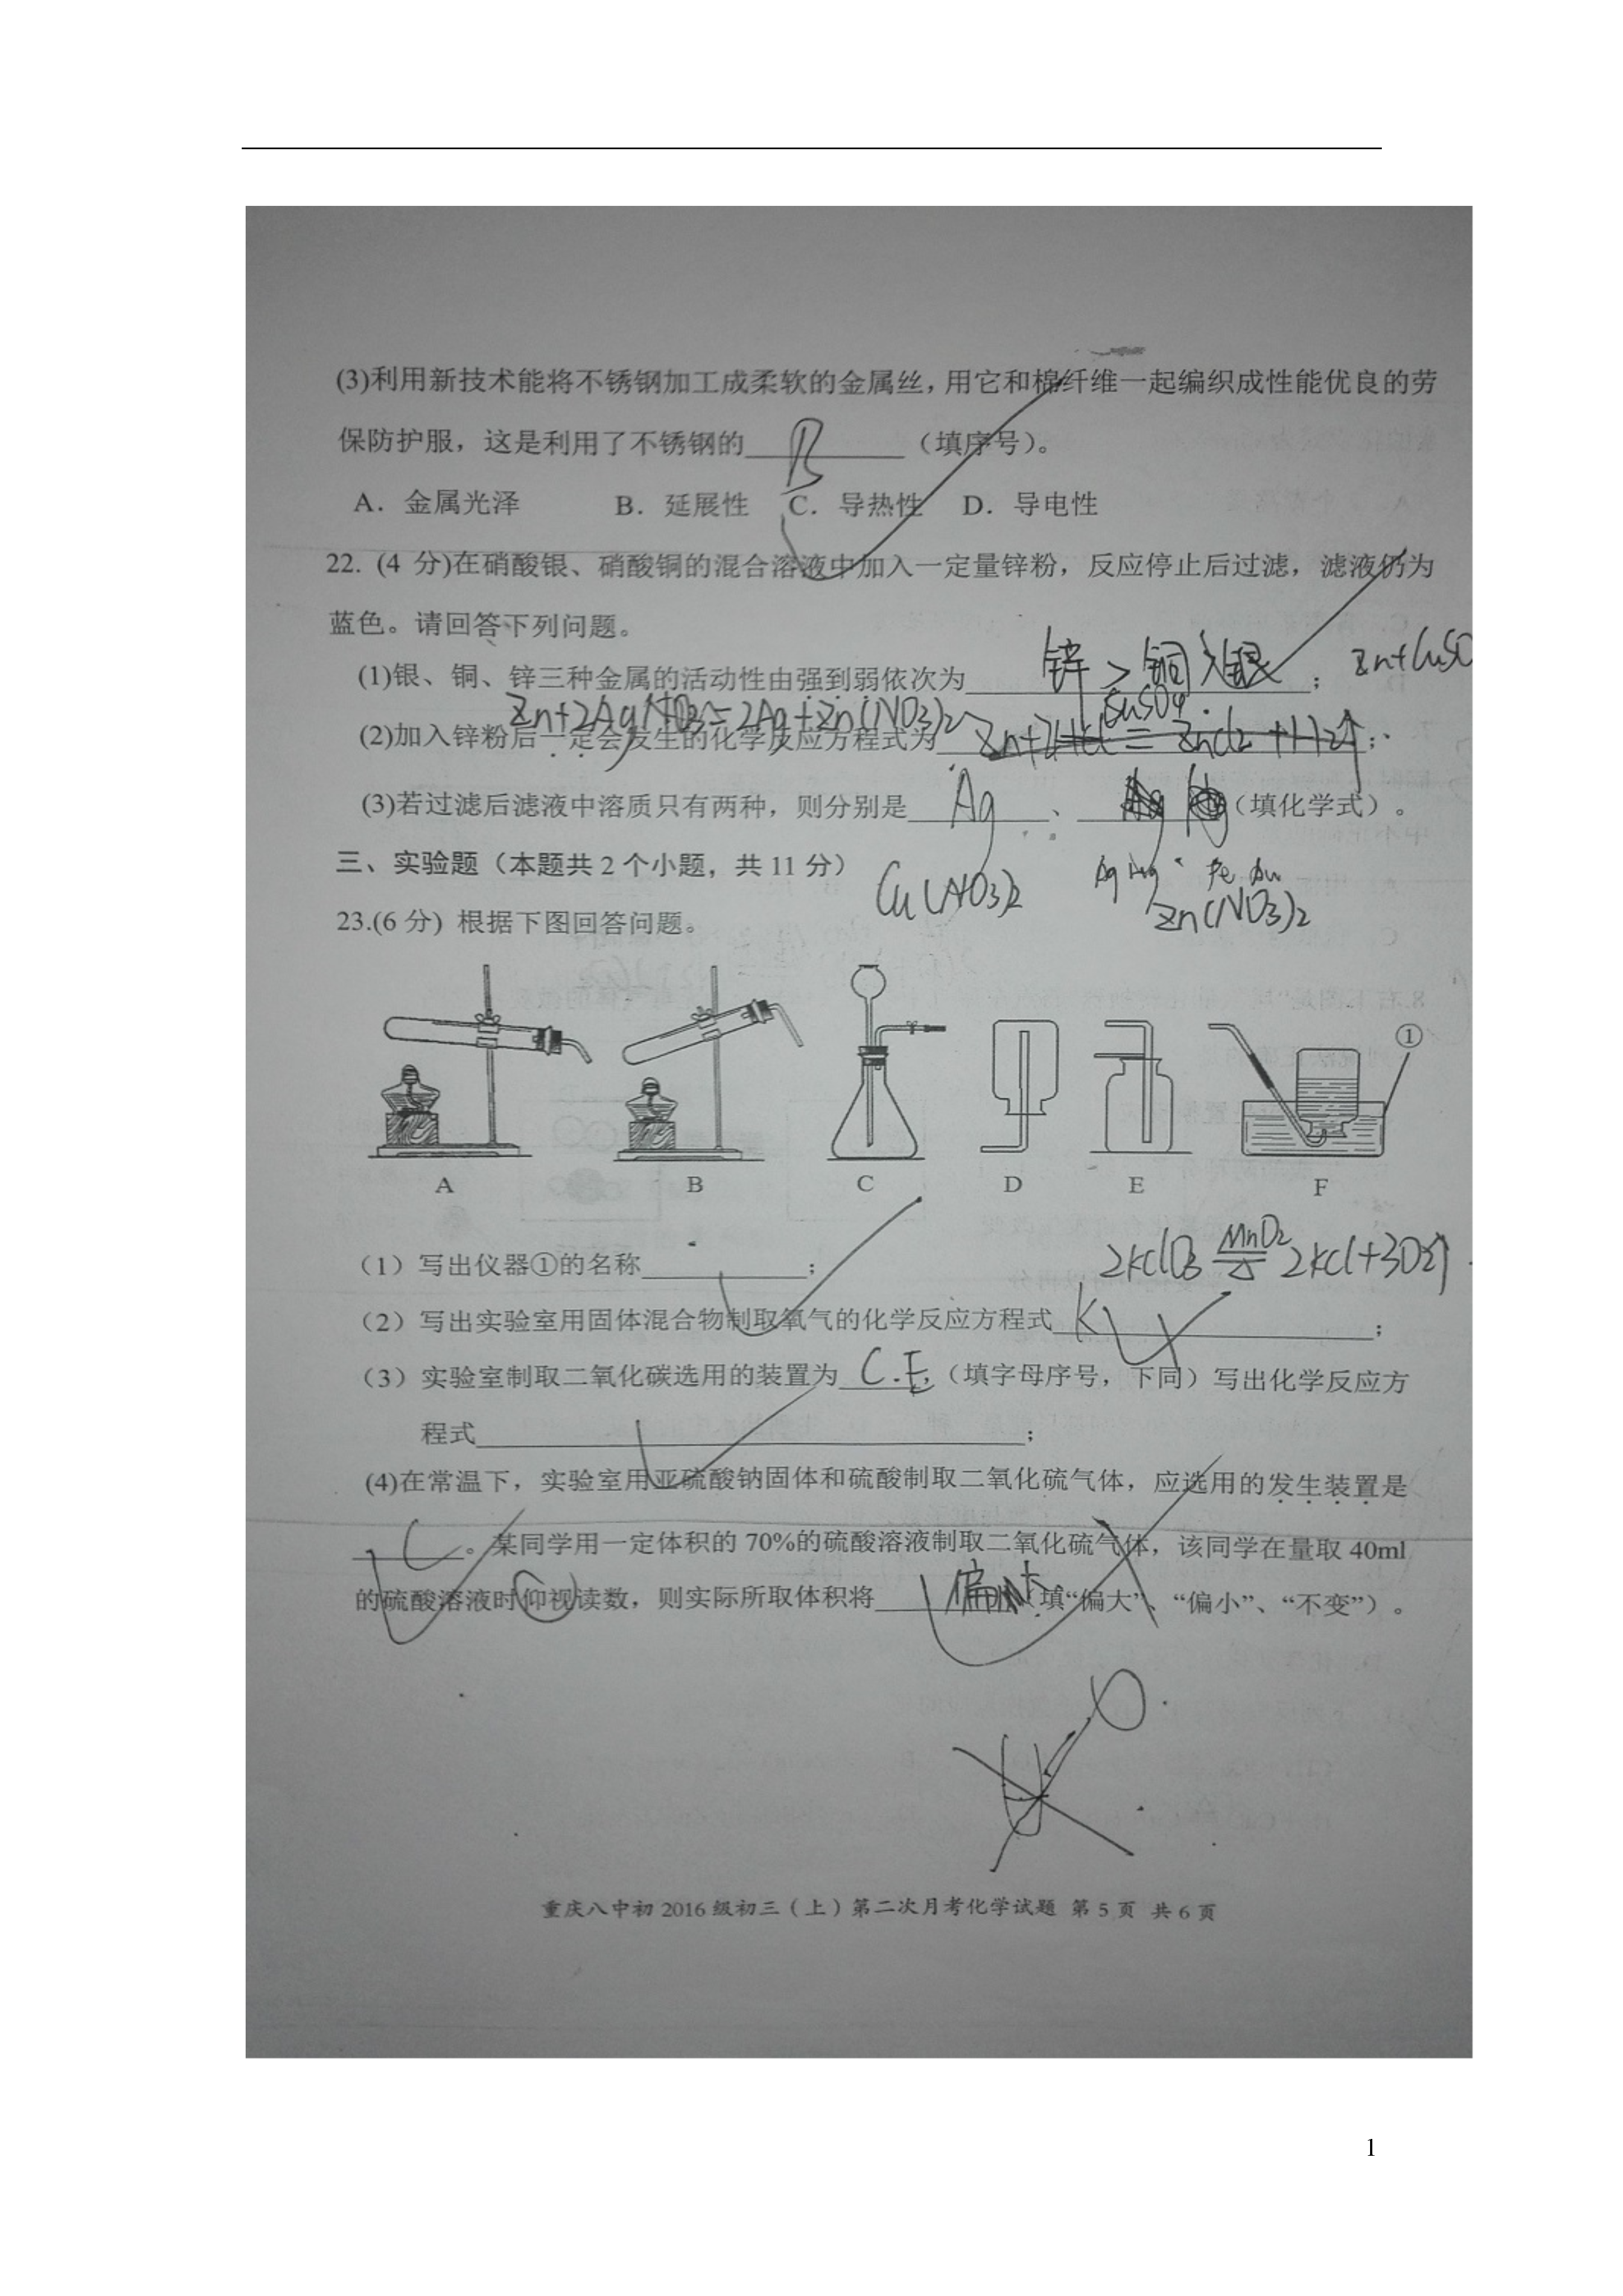 (3)利用新技术能将不锈钢加工成柔软的金属丝，用它和棉纤维一起编织成性能优良的劳
保防护服，这是利用了不锈钢的 B （填序号）。
A．金属光泽 B．延展性 C．导热性 D．导电性
22. (4 分)在硝酸银、硝酸铜的混合溶液中加入一定量锌粉，反应停止后过滤，滤液仍为
蓝色。请回答下列问题。
(1)银、铜、锌三种金属的活动性由强到弱依次为 锌>铜>银 ； Zn+CuSO
Zn+2AgNO3=2Ag+Zn(NO3)2 CuSO4
(2)加入锌粉后一定会发生的化学反应方程式为 Zn+2HCl=ZnCl2+H2↑ ；
(3)若过滤后滤液中溶质只有两种，则分别是 Ag 、 （填化学式）。
三、实验题（本题共 2 个小题，共 11 分）
Cu(NO3)2 Zn(NO3)2
23.(6 分) 根据下图回答问题。
①
A B C D E F
2KClO3 MnO2 = △ 2KCl+3O2↑
（1）写出仪器①的名称 ；
（2）写出实验室用固体混合物制取氧气的化学反应方程式 K ；
（3）实验室制取二氧化碳选用的装置为 C.E （填字母序号，下同）写出化学反应方
程式 ；
(4)在常温下，实验室用亚硫酸钠固体和硫酸制取二氧化硫气体，应选用的发生装置是
C 。某同学用一定体积的 70%的硫酸溶液制取二氧化硫气体，该同学在量取 40ml
的硫酸溶液时仰视读数，则实际所取体积将 偏 （填“偏大”、“偏小”、“不变”）。
重庆八中初 2016 级初三（上）第二次月考化学试题 第 5 页 共 6 页
1